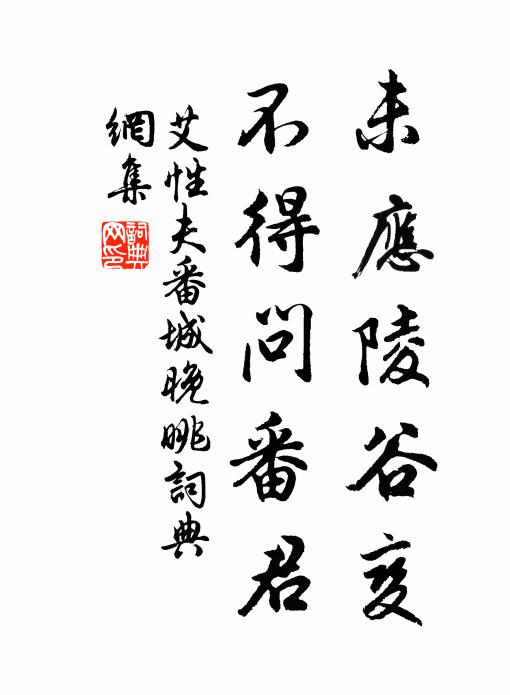 未應陵谷変
不得問番君
艾性夫番城晚眺詞典
網集
詞典
网印